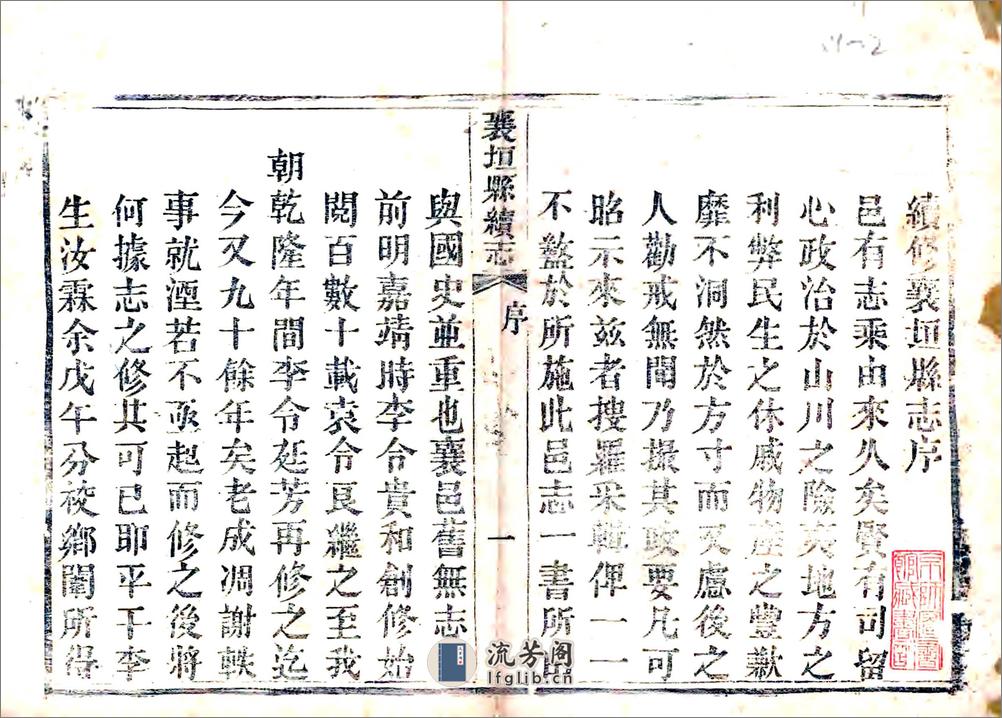 續修襄垣縣志序
邑有志乘由來久矣賢有司留
心政治於山川之險夷地方之
利弊民生之休戚物產之豐歉
靡不洞然於方寸而又慮後之
人勸戒無聞乃撮其政要凡可
昭示來茲者搜羅采輯俾一一
不盭於所施此邑志一書所
襄垣縣續志
序
一
與國史並重也襄邑舊無志
前明嘉靖時李令貴和創修始
閱百數十載袁令良繼之至我
朝乾隆年間李令廷芳再修之迄
今又九十餘年矣老成凋謝軼
事就湮若不亟起而修之後將
何據志之修其可已耶平干李
生汝霖余戊午分校鄉闈所得
流芳阁
lfglib.cn